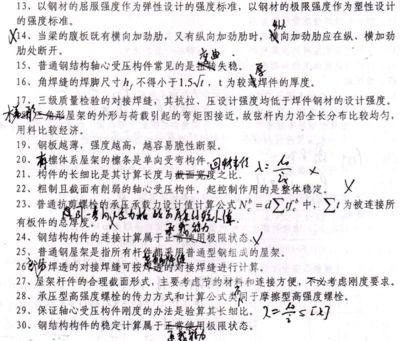 13、以钢材的屈服强度作为弹性设计的强度标准，以钢材的极限强度作为塑性设计
的强度标准。
纵
14、当梁的腹板既有横向加劲肋，又有纵向加劲肋时，横向加劲肋应在纵、横加劲
肋处断开。
弯曲
15、普通钢结构轴心受压构件常见的是扭转失稳。
厚
16、角焊缝的焊脚尺寸 h_f 不得小于1.5√t，t 为较薄焊件的厚度。
17、三级质量检验的对接焊缝，其抗拉、压设计强度均低于焊件钢材的设计强度。
梯形
18、三角形屋架的外形与荷载引起的弯矩图接近，故弦杆内力沿全长分布比较均匀，
用料比较经济。
19、钢板越薄，强度越高，越容易脆性断裂。
20、有檩体系屋架的檩条是单向受弯构件。
回转半径 λ=
21、构件的长细比是其计算长度与截面宽度之比。
22、粗制且截面有削弱的轴心受压构件，起控制作用的是整体稳定。 ×
23、普通抗剪螺栓的承压承载力设计值计算公式 N_c^b = d∑t f_c^b 中，∑t 为被连接所
有板件的总厚度。
承载能力
24、钢结构构件的连接计算属于正常使用极限状态。
25、普通钢屋架是指所有杆件都采用普通型钢组成的屋架。
26、焊透的对接焊缝可按对接焊缝进行计算。
27、屋架杆件的合理截面形式，主要考虑节约材料和连接方便，不必考虑刚度要求。
不
28、承压型高强度螺栓的传力方式和计算公式共同于摩擦型高强度螺栓。
29、保证轴心受压构件刚度的办法是验算其长细比。 ≤[λ]
30、钢结构构件的稳定计算属于正常使用极限状态。
承载能力